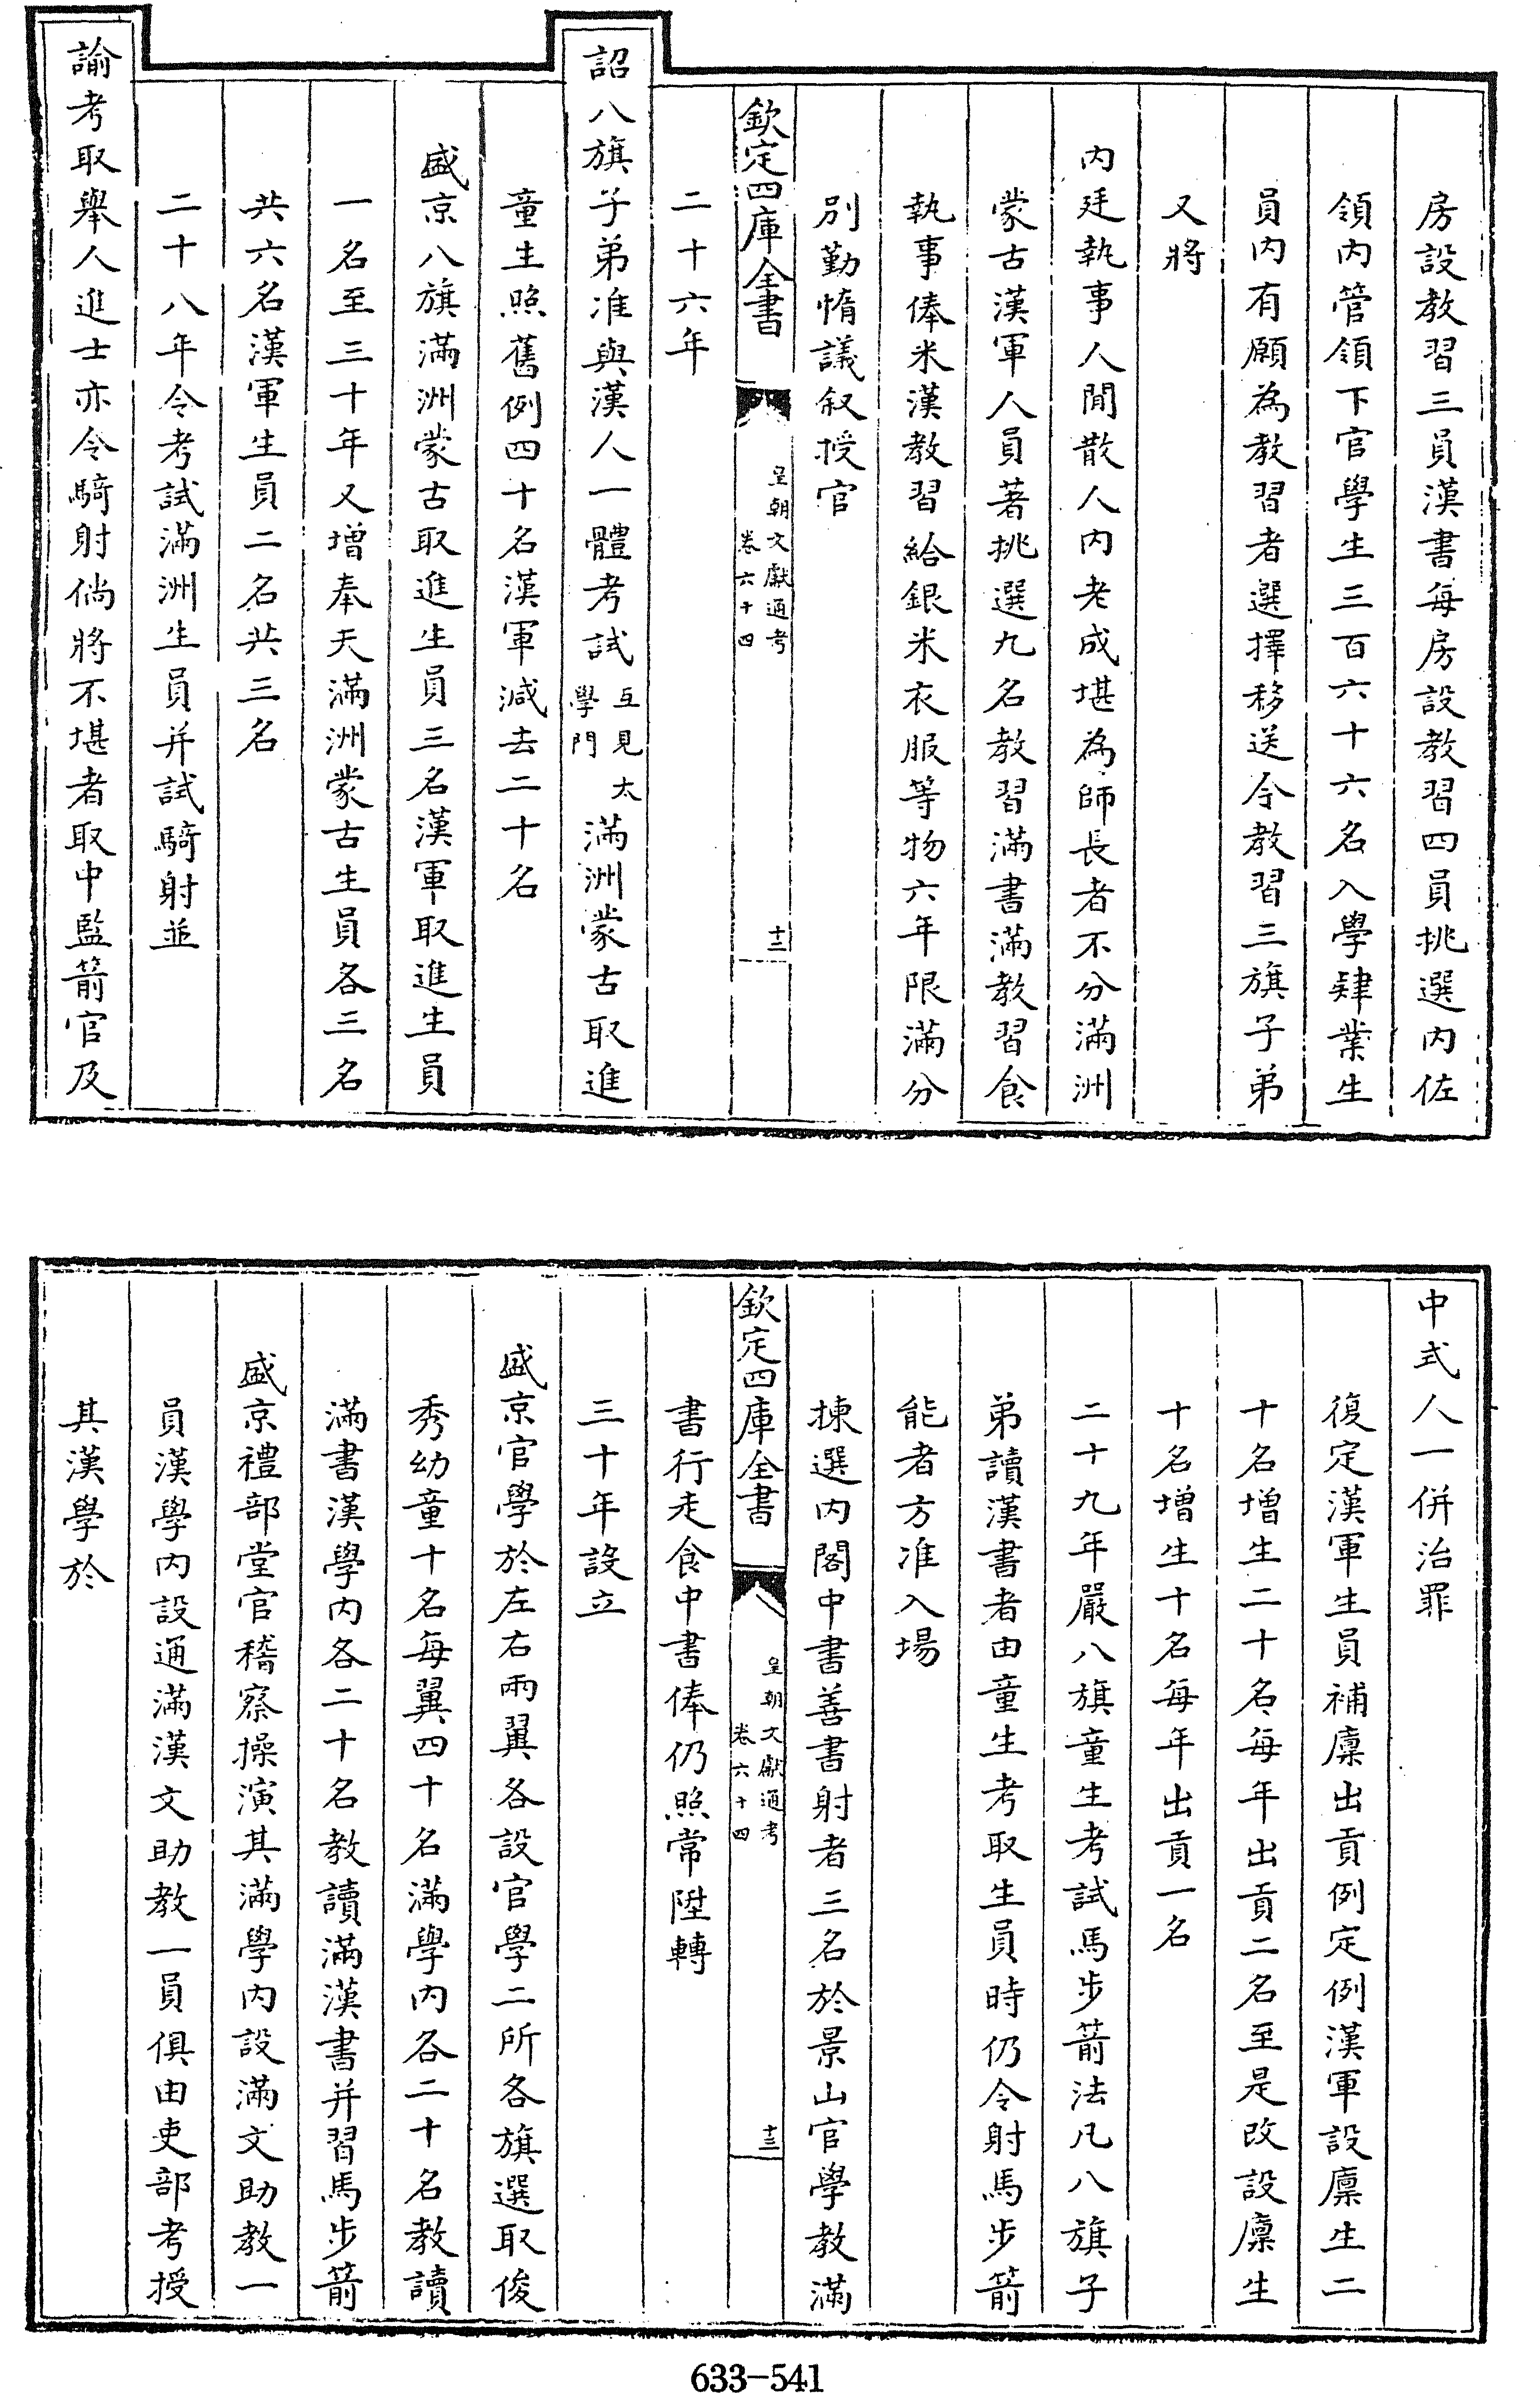 房設教習三員漢書每房設教習四員挑選內佐
領內管領下官學生三百六十六名入學肄業生
員內有願為教習者選擇移送令教習三旗子弟
又將
內廷執事人閒散人內老成堪為師長者不分滿洲
蒙古漢軍人員著挑選九名教習滿書滿教習食
執事俸米漢教習給銀米衣服等物六年限滿分
別勤惰議叙授官
欽定四庫全書
皇朝文獻通考
卷六十四
十二
二十六年
詔八旗子弟准與漢人一體考試互見太學門滿洲蒙古取進
童生照舊例四十名漢軍減去二十名
盛京八旗滿洲蒙古取進生員三名漢軍取進生員
一名至三十年又增奉天滿洲蒙古生員各三名
共六名漢軍生員二名共三名
二十八年令考試滿洲生員并試騎射並
諭考取舉人進士亦令騎射倘將不堪者取中監箭官及
中式人一併治罪
復定漢軍生員補廩出貢例定例漢軍設廩生二
十名增生二十名每年出貢二名至是改設廩生
十名增生十名每年出貢一名
二十九年嚴八旗童生考試馬步箭法凡八旗子
弟讀漢書者由童生考取生員時仍令射馬步箭
能者方准入場
揀選內閣中書善書射者三名於景山官學教滿
欽定四庫全書
皇朝文獻通考
卷六十四
十三
書行走食中書俸仍照常陞轉
三十年設立
盛京官學於左右兩翼各設官學二所各旗選取俊
秀幼童十名每翼四十名滿學內各二十名教讀
滿書漢學內各二十名教讀滿漢書并習馬步箭
盛京禮部堂官稽察操演其滿學內設滿文助教一
員漢學內設通滿漢文助教一員俱由吏部考授
其漢學於
633-541